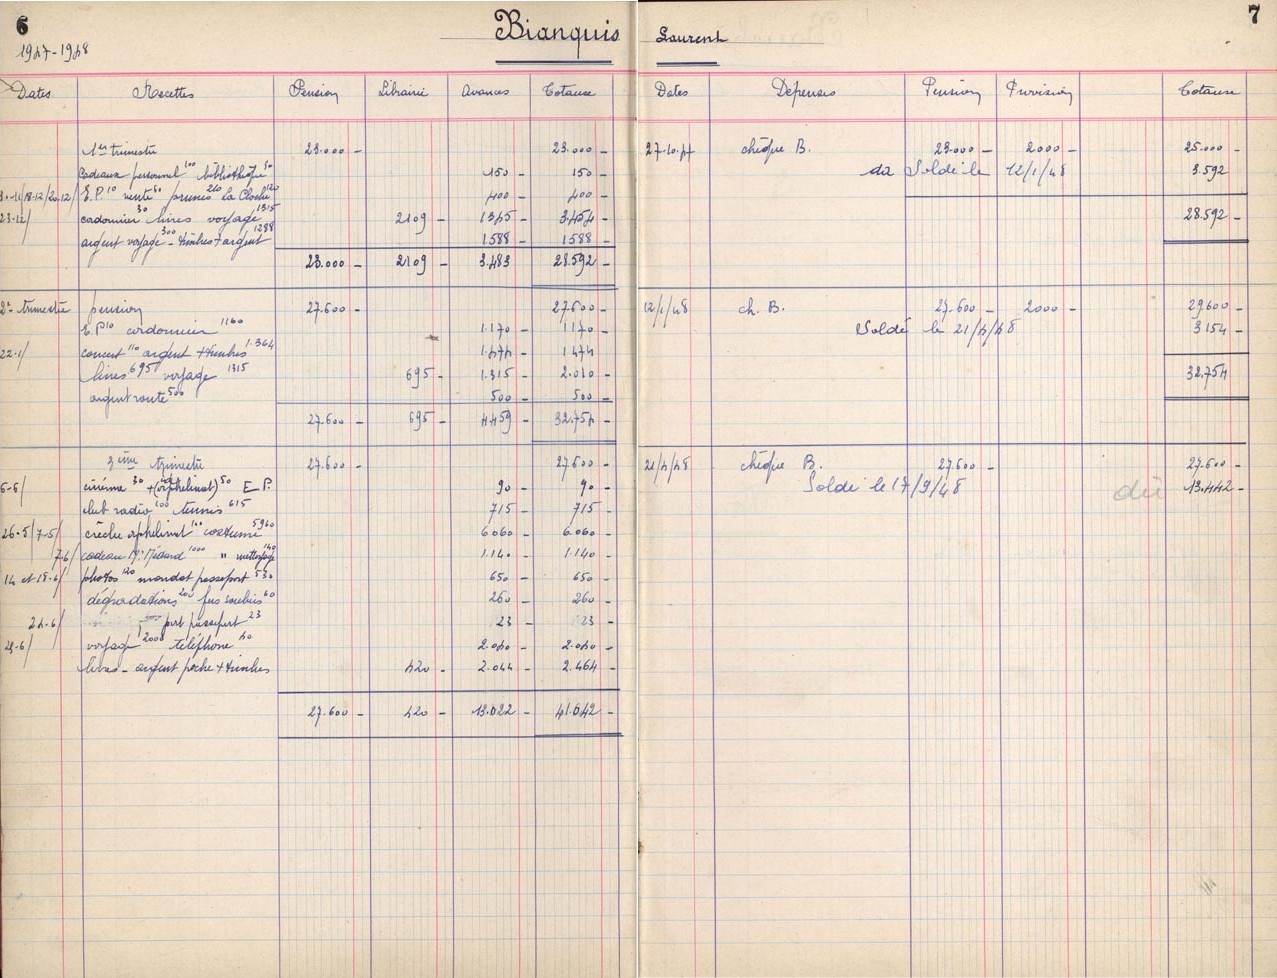 6
1947-1948
Bianquis
Dates Recettes Pension Librairie Avances Totaux
1er trimestre 23.000 - 23.000 -
Cadeaux personnel 100 bibliothèque 50 150 - 150 -
E.P. 10 vente 60 prunes 210 La Cloche 120 400 - 400 -
23-12/ cordonnier 30 livres voyage 1315 2109 - 1345 - 3.454 -
argent voyage 300 - timbres + argent 1288 1588 - 1588 -
23.000 - 2109 - 3.483 28.592 -
2e trimestre pension 27.600 - 27.600 -
E.P 10 cordonnier 1160 1.170 - 1170 -
22-1/ concert 110 argent + timbres 1.364 1.474 - 1474
livres 695 voyage 1315 695 - 1.315 - 2.010 -
argent route 500 500 - 500 -
27.600 - 695 - 4459 - 32.754 -
3ème trimestre 27.600 - 27.600 -
6-6/ cinéma 30 + (orphelinat) 50 E.P. 90 - 90 -
club radio 100 tennis 615 715 - 715 -
26-5/7-5/ crèche orphelinat 100 costume 5960 6.060 - 6.060 -
7-6/ cadeau Médard 1000 " nettoyage 140 1.140 - 1.140 -
14 et 18-6/ photos 120 mandat passeport 530 650 - 650 -
dégradations 200 fers 60 260 - 260 -
24-6/ port passeport 23 23 - 23 -
29-6/ voyage 2000 téléphone 40 2.040 - 2.040 -
livres - argent poche + timbres 420 - 2.044 - 2.464 -
27.600 - 420 - 13.022 - 41.042 -
7
Laurent
Dates Dépenses Pension Provision Totaux
27-10-47 chèque B. 23.000 - 2000 - 25.000 -
dû Soldé le 12/1/48 3.592
28.592 -
12/1/48 ch. B. 27.600 - 2000 - 29.600 -
Soldé le 21/4/48 3154 -
32.754
21/4/48 chèque B. 27.600 - 27.600 -
Soldé le 17/9/48 dû 13.442 -